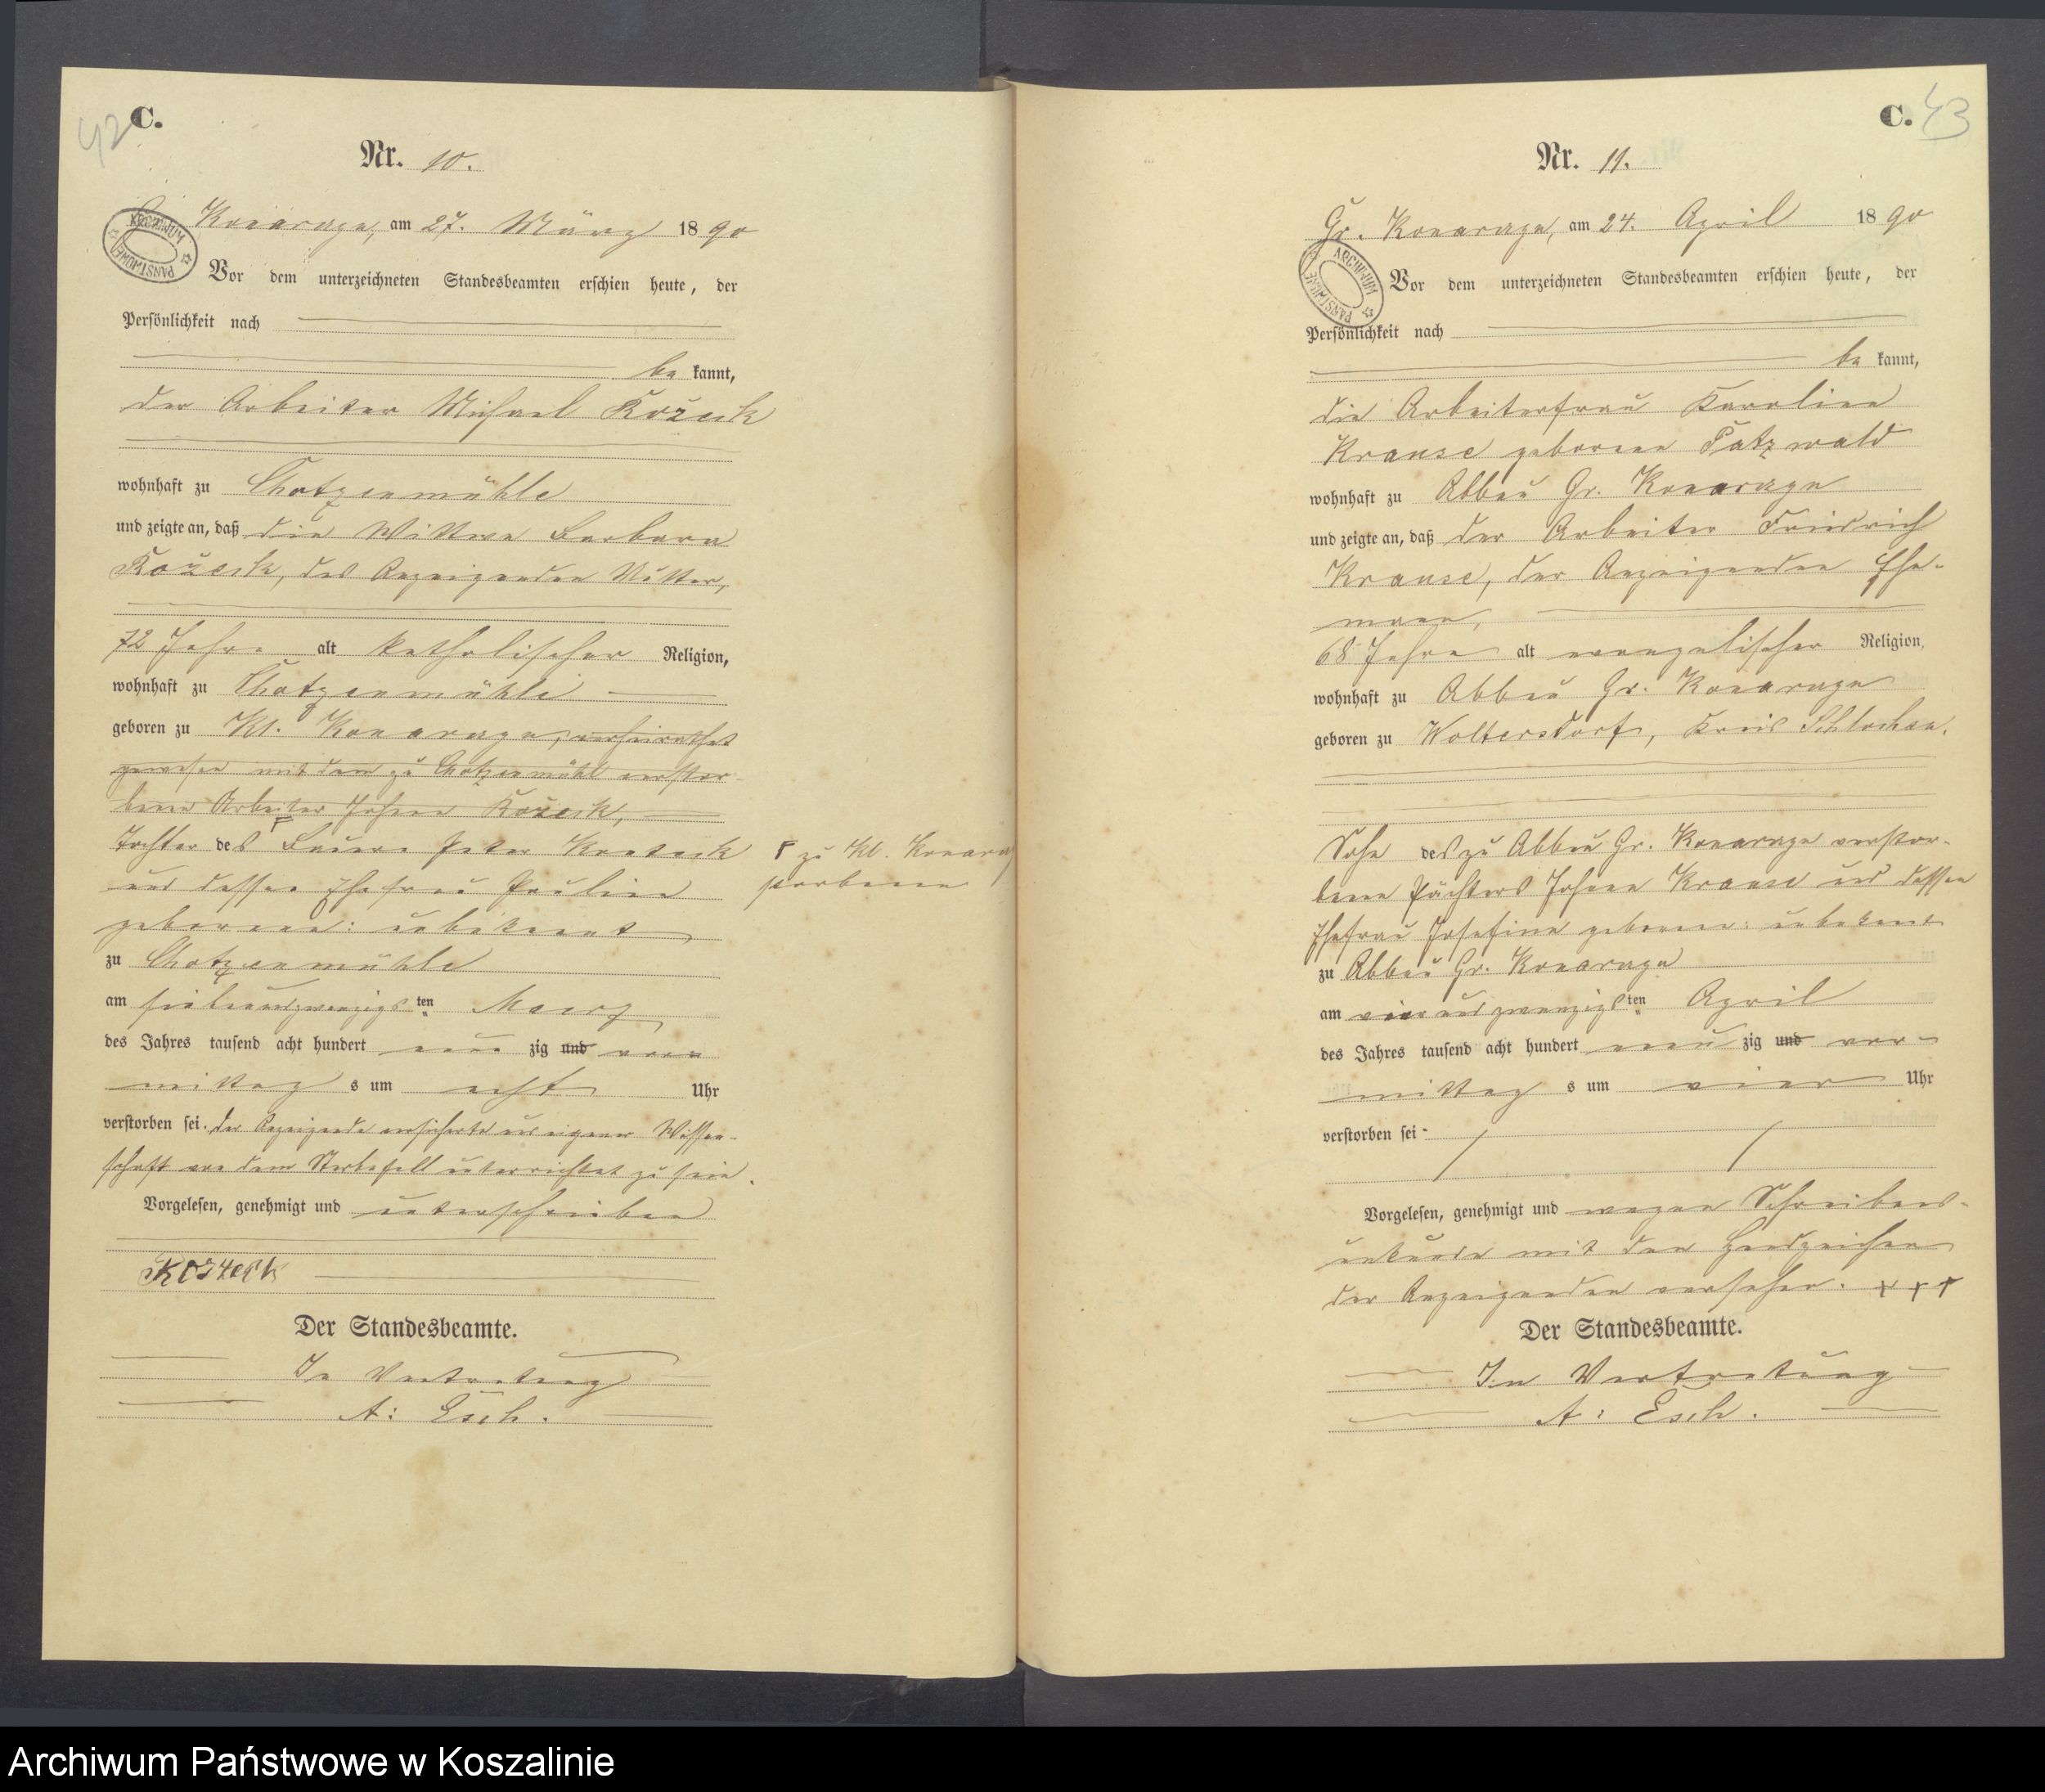 42
C.
Nr. 10.
Konarczyn, am 27. März 1890
Vor dem unterzeichneten Standesbeamten erschien heute, der
Persönlichkeit nach
be kannt,
der Arbeiter Michael
wohnhaft zu Chotzenmühle
und zeigte an, daß die Wittwe Barbara
des Anzeigenden Mutter,
72 Jahre alt katholischer Religion,
wohnhaft zu Chotzenmühle
geboren zu Kl. Konarczyn, verheirathet
gewesen mit dem zu Chotzenmühl verstor-
benen Arbeiter Johann
Tochter des Γ Bauern Peter
Γ zu Kl.
storbenen
und dessen Ehefrau Pauline
geborenen: unbekannt
zu Chotzenmühle
am siebenundzwanzigsten März
des Jahres tausend acht hundert neun zig und vor
mittag s um acht Uhr
verstorben sei. der Anzeigende versicherte aus eigener Wissen-
schaft von dem Sterbefall unterrichtet zu sein.
Vorgelesen, genehmigt und unterschrieben
Der Standesbeamte.
In Vertretung
A: Esch.
C. 43
Nr. 11.
Gr. Konarczyn, am 24. April 1890
Vor dem unterzeichneten Standesbeamten erschien heute, der
Persönlichkeit nach
be kannt,
die Arbeiterfrau Karoline
Krause geborene Patzwald
wohnhaft zu Abbau Gr. Konarczyn
und zeigte an, daß der Arbeiter Friedrich
Krause, der Anzeigenden Ehe-
mann,
68 Jahre alt evangelischer Religion,
wohnhaft zu Abbau Gr. Konarczyn
geboren zu Woltersdorf, Kreis Schlochau,
Sohn des zu Abbau Gr. Konarczyn verstor-
benen Pächters Johann Krause und dessen
Ehefrau Josefine geborene: unbekant
zu Abbau Gr. Konarczyn
am vierundzwanzigsten April
des Jahres tausend acht hundert neun zig und vor-
mittag s um vier Uhr
verstorben sei
Vorgelesen, genehmigt und wegen Schreibens-
unkunde mit den Handzeichen
der Anzeigenden versehen. + + +
Der Standesbeamte.
In Vertretung
A: Esch.
Archiwum Państwowe w Koszalinie